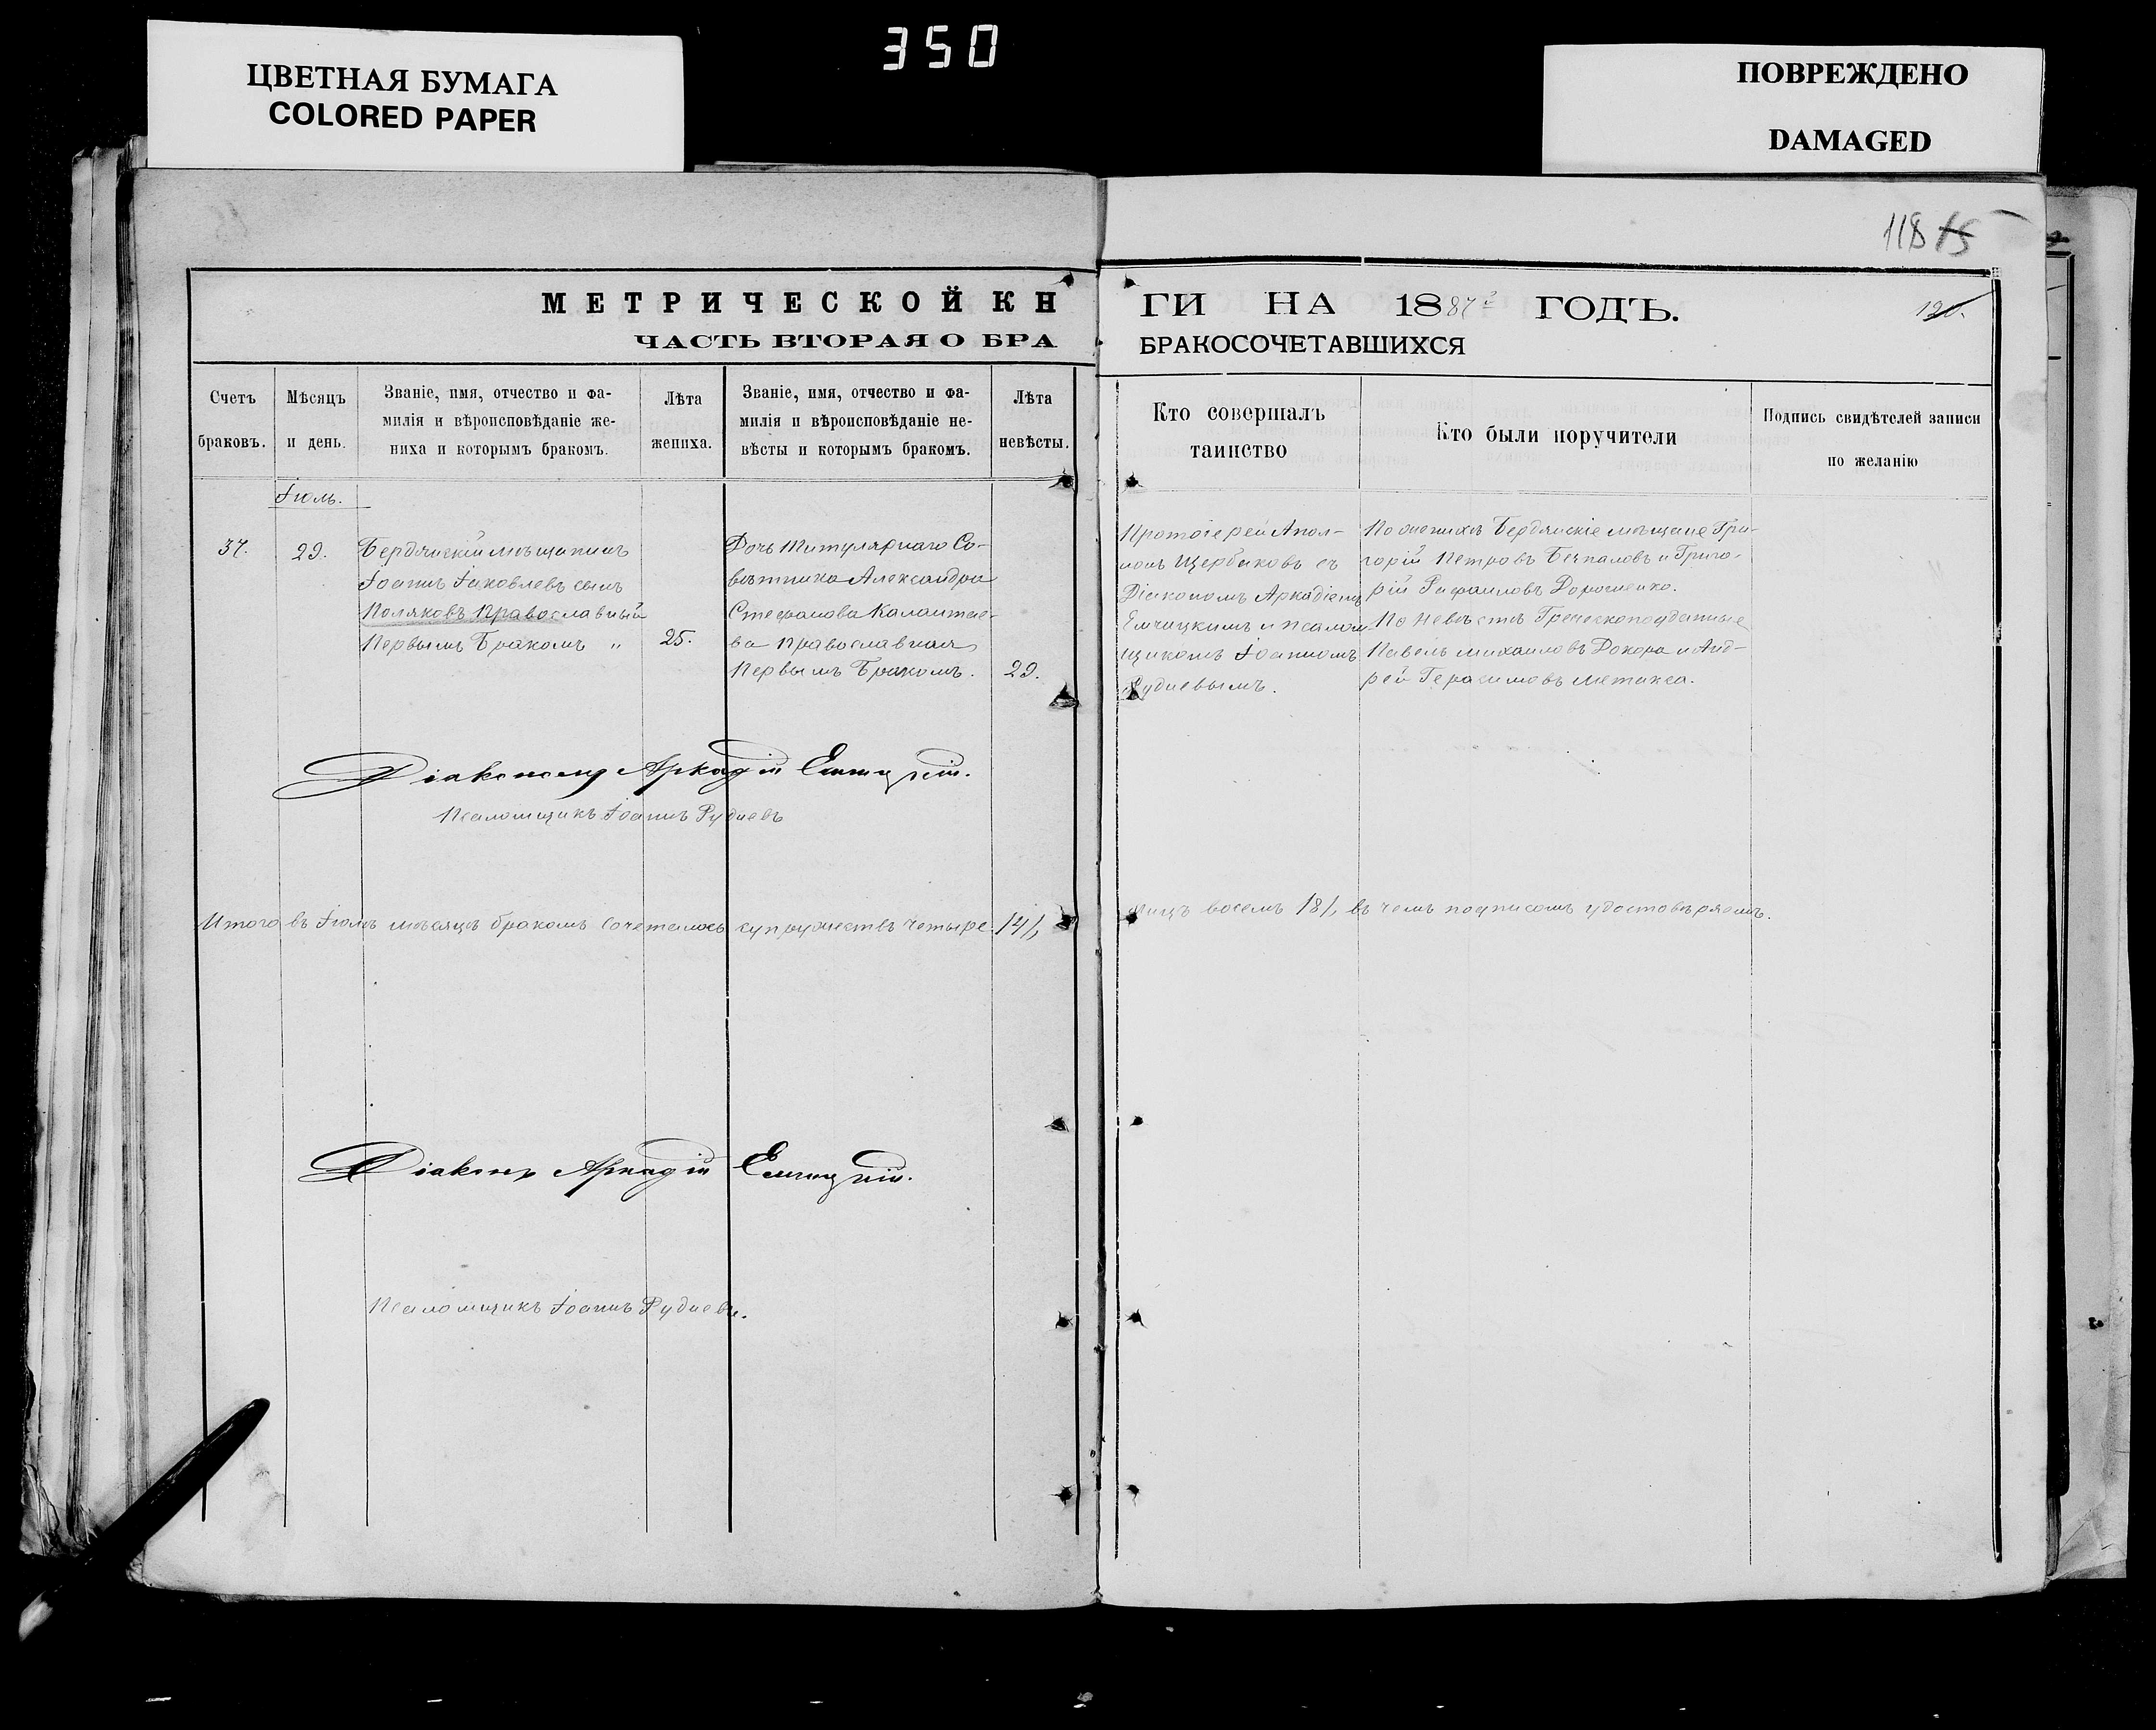 ЦВЕТНАЯ БУМАГА
COLORED PAPER
350
ПОВРЕЖДЕНО
DAMAGED
118
120.
МЕТРИЧЕСКОЙ КН
ЧАСТЬ ВТОРАЯ О БРА
ГИ НА 1887 ГОДЪ.
БРАКОСОЧЕТАВШИХСЯ
Счетъ браковъ.
Мѣсяцъ и день.
Званіе, имя, отчество и фа-
милія и вѣроисповѣданіе же-
ниха и которымъ бракомъ.
Лѣта жениха.
Званіе, имя, отчество и фа-
милія и вѣроисповѣданіе не-
вѣсты и которымъ бракомъ.
Лѣта невѣсты.
Кто совершалъ
таинство
Кто были поручители
Подпись свидѣтелей записи
по желанію
Іюль.
37.
29.
Бердянскій мѣщанинъ
Іоаннъ Іаковлевъ сынъ
Поляковъ Православный
Первымъ Бракомъ "
25.
Дочь Титулярнаго Со-
вѣтника Александра
Стефанова
ва Православная
Первымъ Бракомъ.
29.
Протоіерей Апол-
лонъ Щербаковъ съ
Діакономъ Аркадіемъ
Емчицкимъ и псалом-
щикомъ Іоанномъ
Рудневымъ.
По женихѣ Бердянскіе мѣщане Гри-
горій Петровъ и Григо-
рій Рафаиловъ Дорошенко.
По невѣстѣ Греческоподданные
Павелъ Михаиловъ и Анд-
рей Герасимовъ Метакса.
Діаконъ Аркадій Емчицкій.
Псаломщикъ Іоаннъ Рудневъ
Итого въ Іюлѣ мѣсяцѣ бракомъ сочеталось супружествъ четыре /4/,
лицъ восемь /8/, въ чемъ подписомъ удостовѣряемъ.
Діаконъ Аркадій Емчицкій.
Псаломщикъ Іоаннъ Рудневъ.